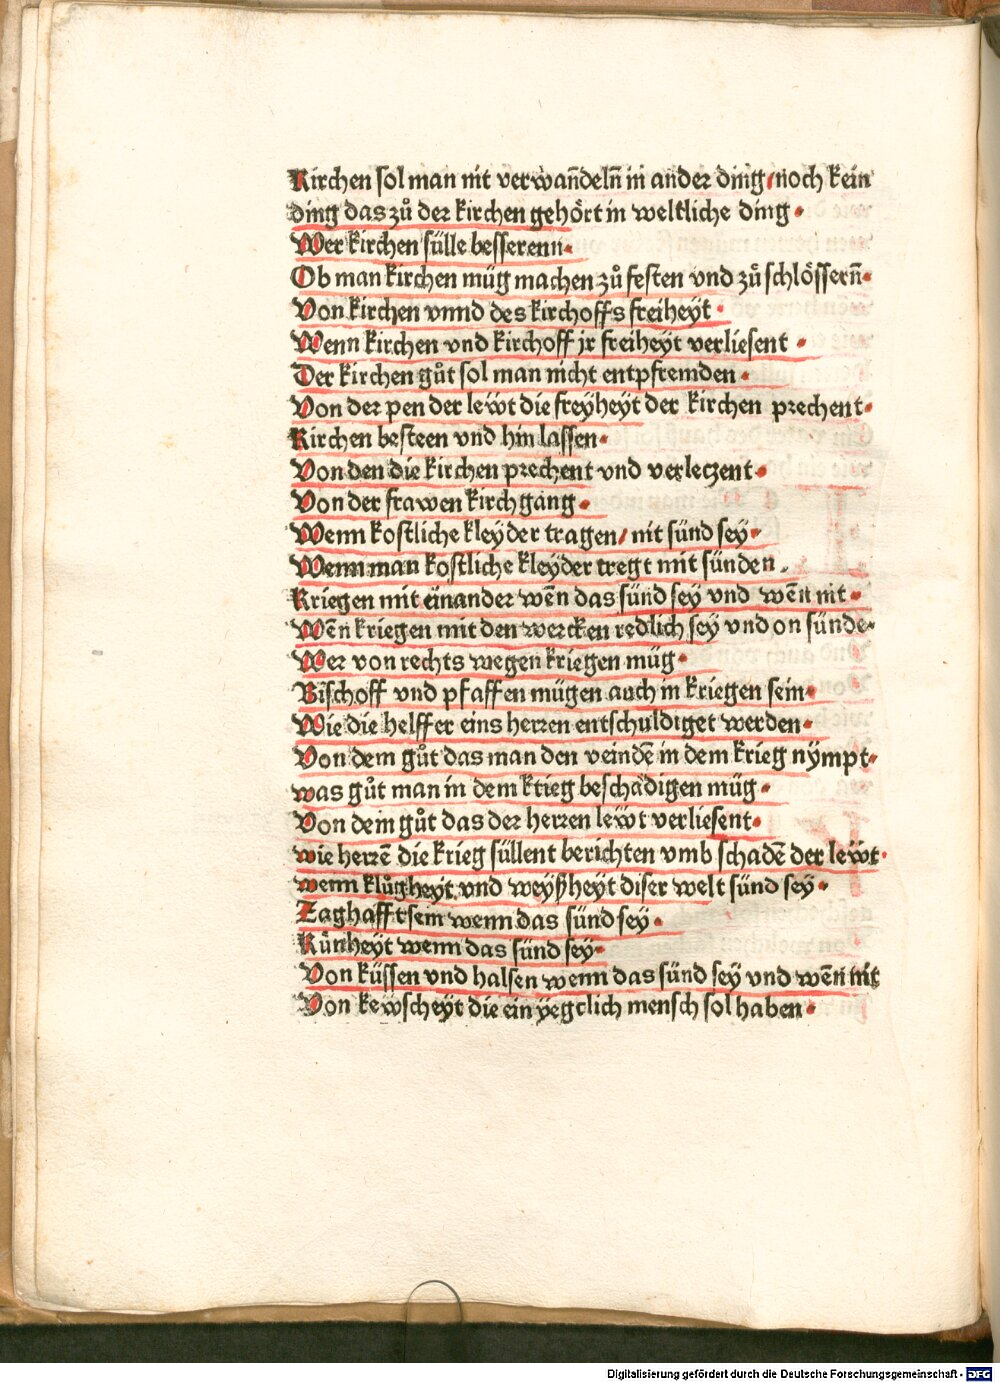 Kirchen sol man nit verwañdelñ in ander ding/noch kein
ding das zů der kirchen gehört in weltliche ding.
Wer kirchen sülle besserenn.
Ob man kirchen müg machen zů festen vnd zů schlössern̄.
Von kirchen vnnd des kirchoffs freiheyt.
Wenn kirchen vnd kirchoff jr freiheyt verliesent.
Der kirchen gůt sol man nicht entpfremden.
Von der pen der lewt die freyheyt der kirchen prechent.
Kirchen besteen vnd hin lassen.
Von den die kirchen prechent vnd verleczent.
Von der frawen kirchgang.
Wenn kostliche kleyder tragen/nit sünd sey.
Wenn man kostliche kleyder tregt mit sünden.
Kriegen mit einander wēn das sünd sey vnd wēn nit.
Wēn kriegen mit den wercken redlich sey vnd on sünde.
Wer von rechts wegen kriegen müg.
Bischoff vnd pfaffen mügen auch in kriegen sein.
Wie die helffer eins herren entschuldiget werden.
Von dem gůt das man den veindē in dem krieg nympt.
was gůt man in dem ktieg beschädigen müg.
Von dem gůt das der herren lewt verliesent.
wie herrē die krieg süllent berichten vmb schadē der lewt.
wenn klůgheyt vnd weyßheyt diser welt sünd sey.
Zaghafft sein wenn das sünd sey.
Künheyt wenn das sünd sey.
Von küssen vnd halsen wenn das sünd sey vnd wēn nit
Von kewscheyt die ein yegclich mensch sol haben.
Digitalisierung gefördert durch die Deutsche Forschungsgemeinschaft - DFG